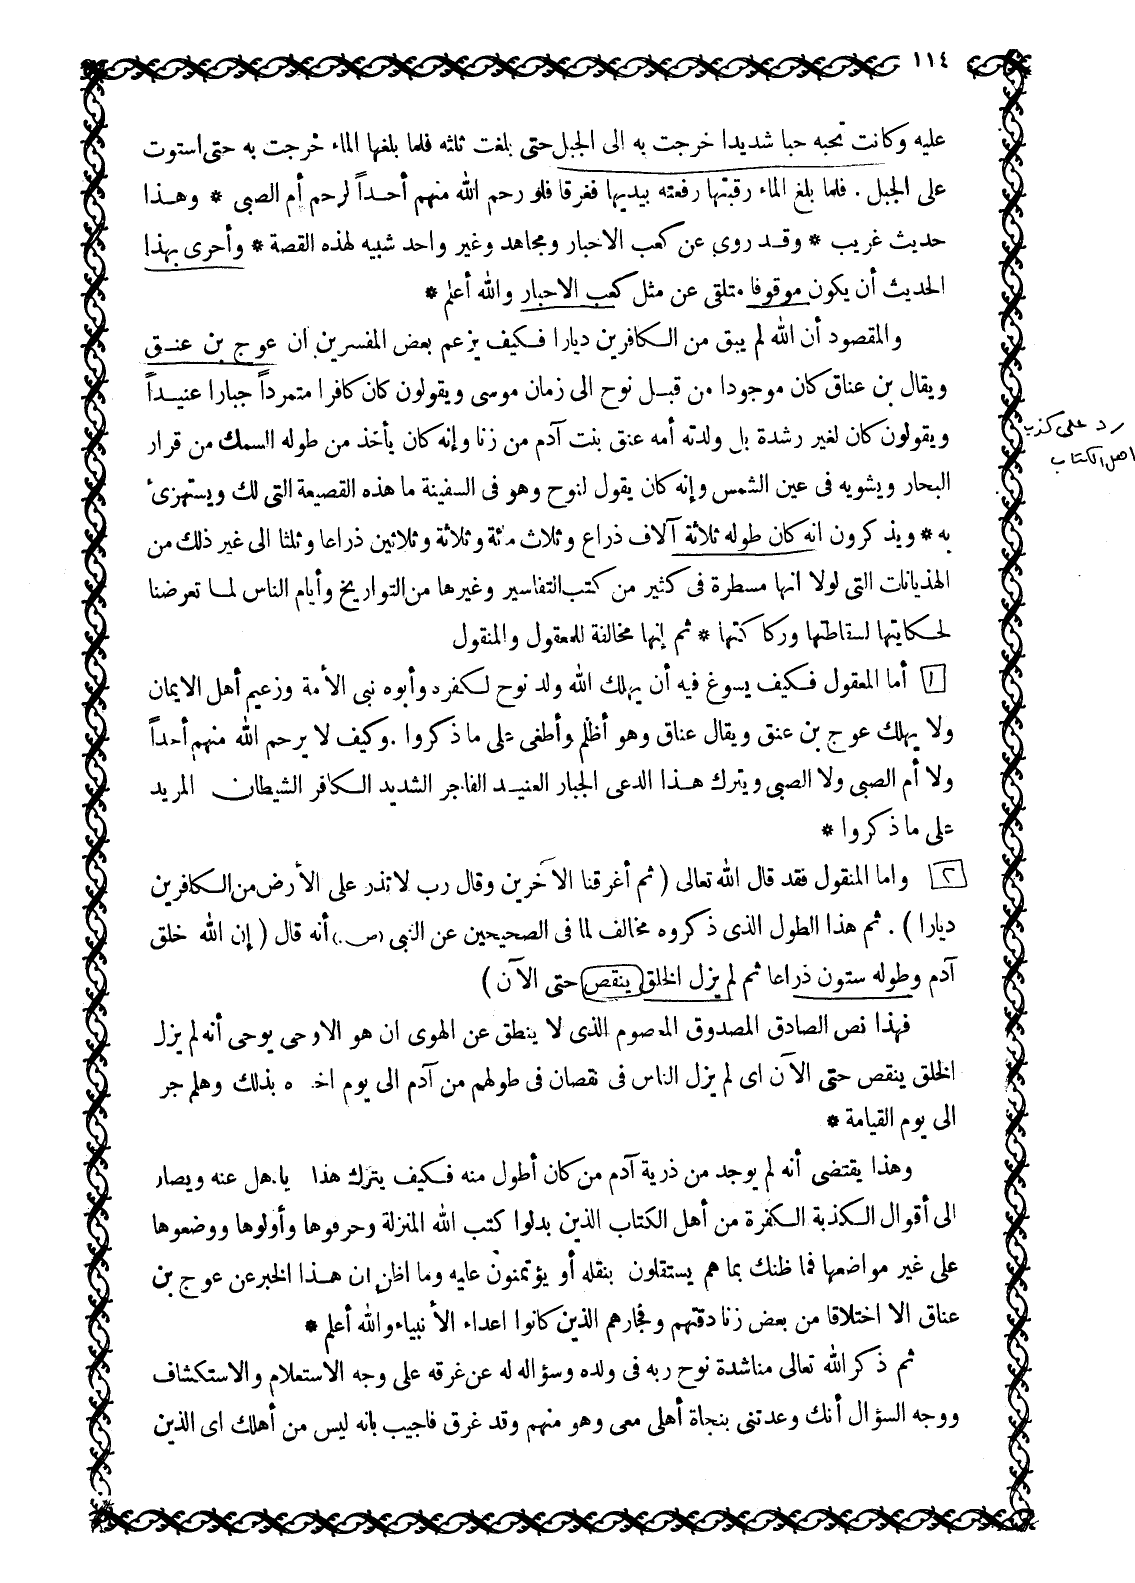 ١١٤
عليه وكانت تحبه حبا شديدا خرجت به الى الجبل حتى بلغت ثلثه فلما بلغها الماء خرجت به حتى استوت
على الجبل . فلما بلغ الماء رقبتها رفعته بيديها فغرقا فلو رحم الله منهم أحداً لرحم أم الصبي * وهذا
حديث غريب * وقد روي عن كعب الاحبار ومجاهد وغير واحد شبيه لهذه القصة * وأحرى بهذا
الحديث أن يكون موقوفا متلقى عن مثل كعب الاحبار والله أعلم *
والمقصود أن الله لم يبق من الكافرين ديارا فكيف يزعم بعض المفسرين ان عوج بن عنق
ويقال بن عناق كان موجودا من قبل نوح الى زمان موسى ويقولون كان كافرا متمرداً جبارا عنيداً
ويقولون كان لغير رشدة بل ولدته أمه عنق بنت آدم من زنا وإنه كان يأخذ من طوله السمك من قرار
البحار ويشويه فى عين الشمس وإنه كان يقول لنوح وهو فى السفينة ما هذه القصيعة التى لك ويستهزىء
به * ويذكرون انه كان طوله ثلاثة آلاف ذراع وثلاث مئة وثلاثة وثلاثين ذراعا وثلثا الى غير ذلك من
الهذيانات التى لولا انها مسطرة فى كثير من كتب التفاسير وغيرها من التواريخ وأيام الناس لما تعرضنا
لحكايتها لسقاطتها وركاكتها * ثم إنها مخالفة للمعقول والمنقول
١ أما المعقول فكيف يسوغ فيه أن يهلك الله ولد نوح لكفره وأبوه نبى الأمة وزعيم أهل الايمان
ولا يهلك عوج بن عنق ويقال عناق وهو أظلم وأطغى على ما ذكروا . وكيف لا يرحم الله منهم أحداً
ولا أم الصبى ولا الصبى ويترك هذا الدعى الجبار العنيد الفاجر الشديد الكافر الشيطان المريد
على ما ذكروا *
٢ واما المنقول فقد قال الله تعالى ( ثم أغرقنا الآخرين وقال رب لا تذر على الأرض من الكافرين
ديارا ) . ثم هذا الطول الذى ذكروه مخالف لما فى الصحيحين عن النبى (ص.) أنه قال ( إن الله خلق
آدم وطوله ستون ذراعا ثم لم يزل الخلق ينقص حتى الآن )
فهذا نص الصادق المصدوق المعصوم الذى لا ينطق عن الهوى ان هو الا وحى يوحى أنه لم يزل
الخلق ينقص حتى الآن اى لم يزل الناس فى نقصان فى طولهم من آدم الى يوم اخ ه بذلك وهلم جر
الى يوم القيامة *
وهذا يقتضى أنه لم يوجد من ذرية آدم من كان أطول منه فكيف يترك هذا يذهل عنه ويصار
الى أقوال الكذبة الكفرة من أهل الكتاب الذين بدلوا كتب الله المنزلة وحرفوها وأولوها ووضعوها
على غير مواضعها فما ظنك بما هم يستقلون بنقله أو يؤتمنون عليه وما اظن ان هذا الخبر عن عوج بن
عناق الا اختلاقا من بعض زنادقتهم وفجارهم الذين كانوا اعداء الأنبياء والله أعلم *
ثم ذكر الله تعالى مناشدة نوح ربه فى ولده وسؤاله له عن غرقه على وجه الاستعلام والاستكشاف
ووجه السؤال أنك وعدتنى بنجاة أهلى معى وهو منهم وقد غرق فاجيب بانه ليس من أهلك اى الذين
رد على كذب
اهل الكتاب